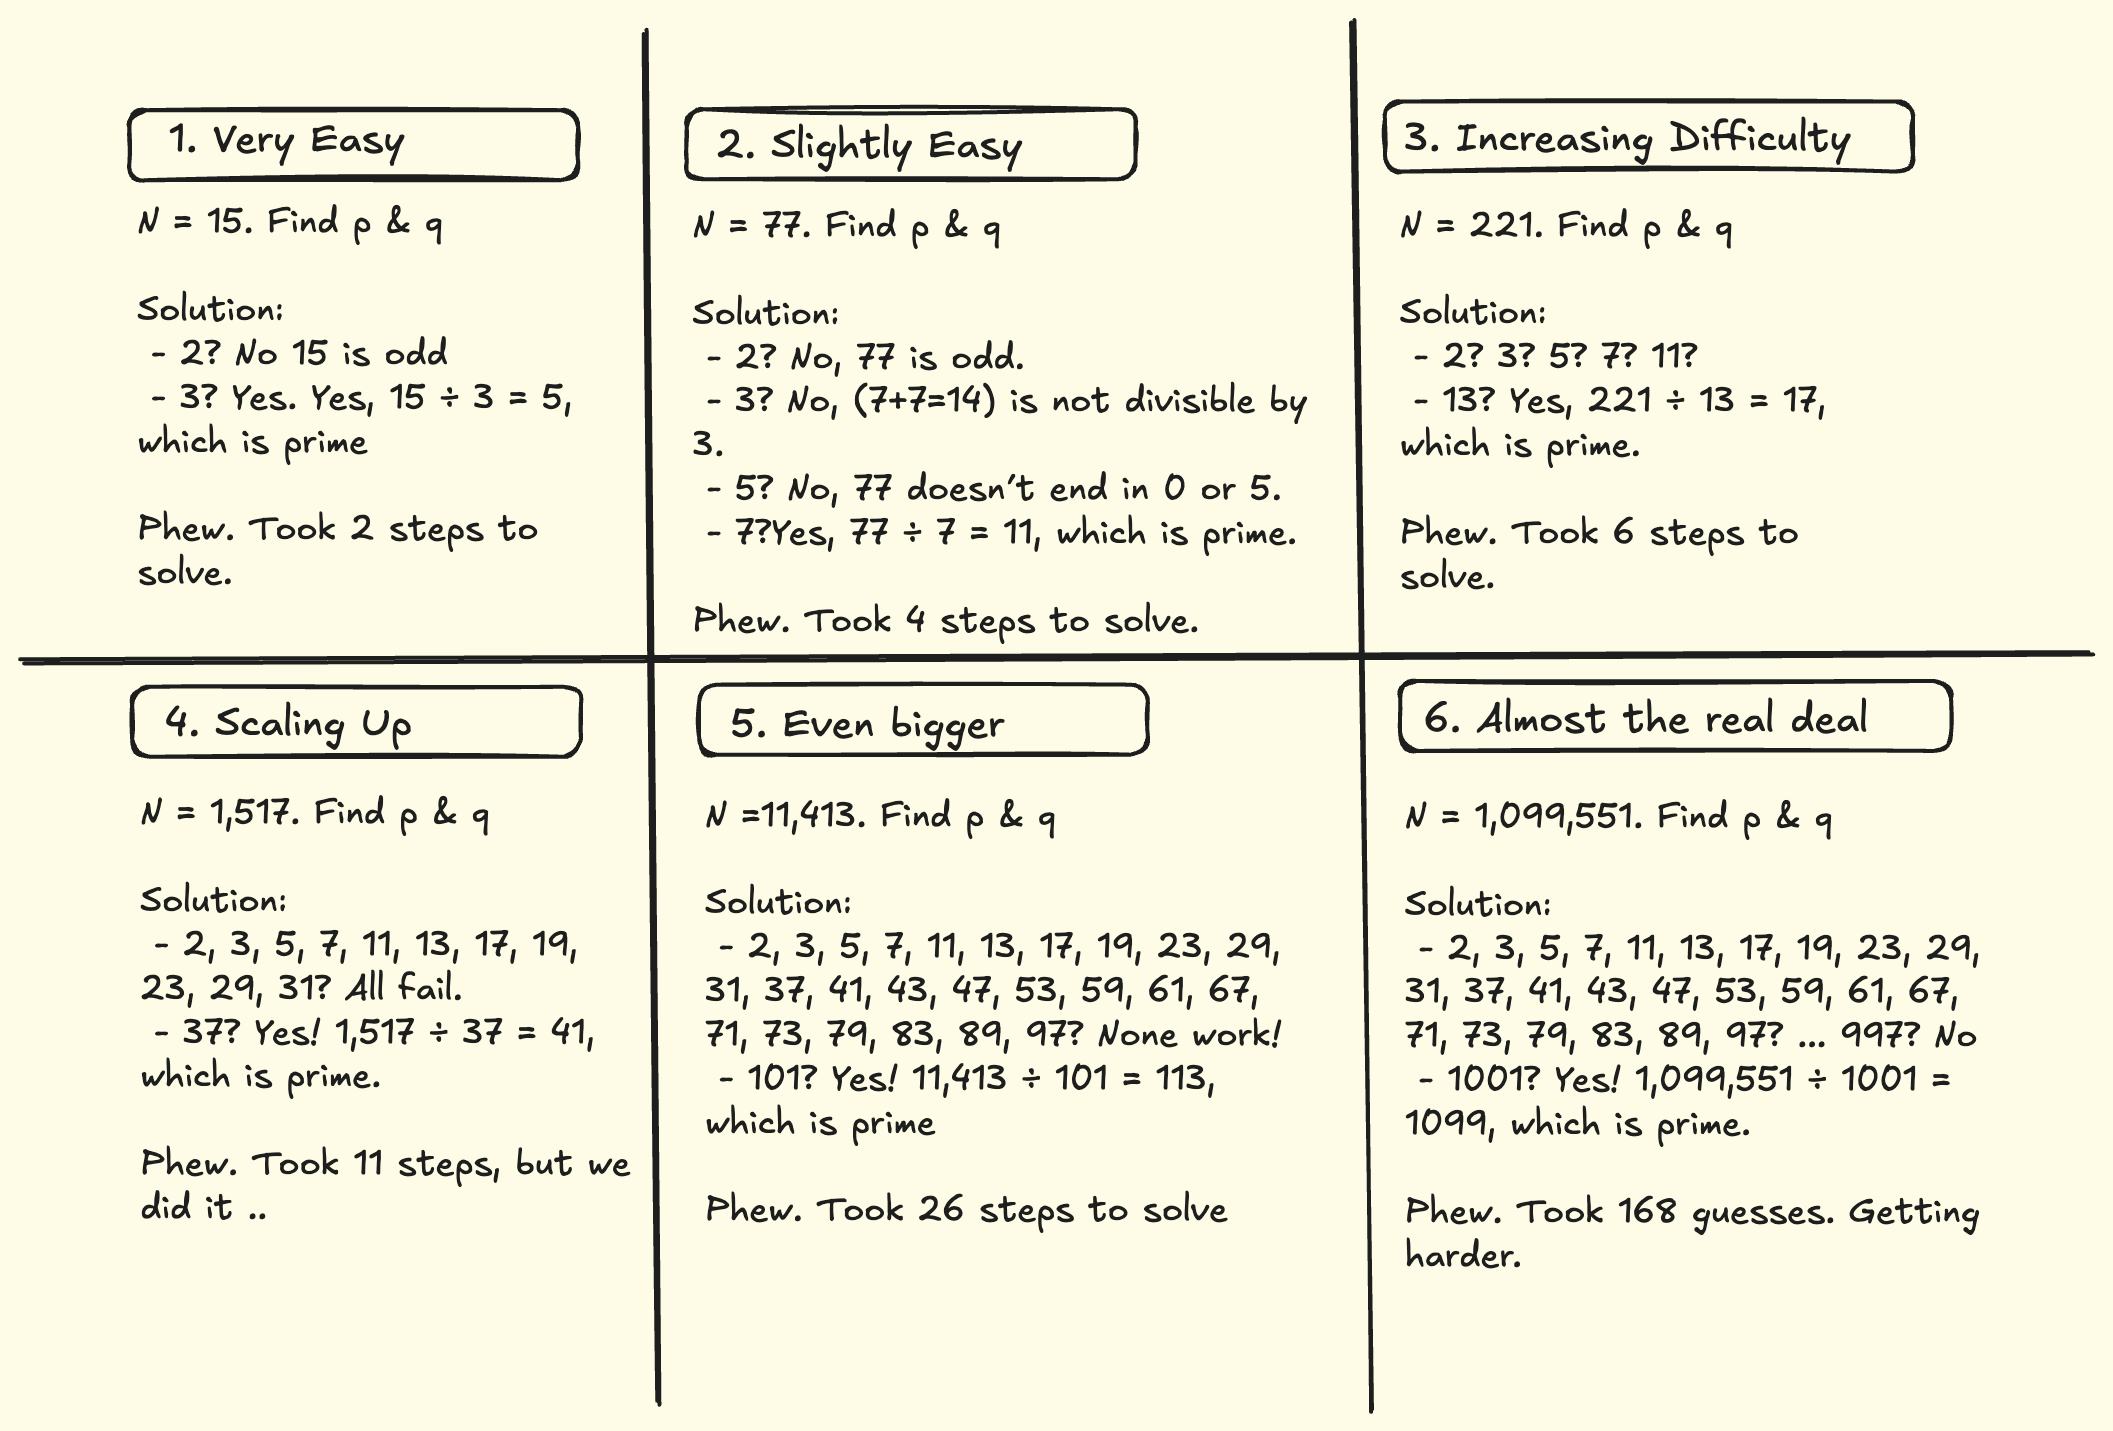 1. Very Easy
N = 15. Find p & q
Solution:
- 2? No 15 is odd
- 3? Yes. Yes, 15 ÷ 3 = 5,
which is prime
Phew. Took 2 steps to
solve.
2. Slightly Easy
N = 77. Find p & q
Solution:
- 2? No, 77 is odd.
- 3? No, (7+7=14) is not divisible by
3.
- 5? No, 77 doesn't end in 0 or 5.
- 7?Yes, 77 ÷ 7 = 11, which is prime.
Phew. Took 4 steps to solve.
3. Increasing Difficulty
N = 221. Find p & q
Solution:
- 2? 3? 5? 7? 11?
- 13? Yes, 221 ÷ 13 = 17,
which is prime.
Phew. Took 6 steps to
solve.
4. Scaling Up
N = 1,517. Find p & q
Solution:
- 2, 3, 5, 7, 11, 13, 17, 19,
23, 29, 31? All fail.
- 37? Yes! 1,517 ÷ 37 = 41,
which is prime.
Phew. Took 11 steps, but we
did it ..
5. Even bigger
N =11,413. Find p & q
Solution:
- 2, 3, 5, 7, 11, 13, 17, 19, 23, 29,
31, 37, 41, 43, 47, 53, 59, 61, 67,
71, 73, 79, 83, 89, 97? None work!
- 101? Yes! 11,413 ÷ 101 = 113,
which is prime
Phew. Took 26 steps to solve
6. Almost the real deal
N = 1,099,551. Find p & q
Solution:
- 2, 3, 5, 7, 11, 13, 17, 19, 23, 29,
31, 37, 41, 43, 47, 53, 59, 61, 67,
71, 73, 79, 83, 89, 97? ... 997? No
- 1001? Yes! 1,099,551 ÷ 1001 =
1099, which is prime.
Phew. Took 168 guesses. Getting
harder.